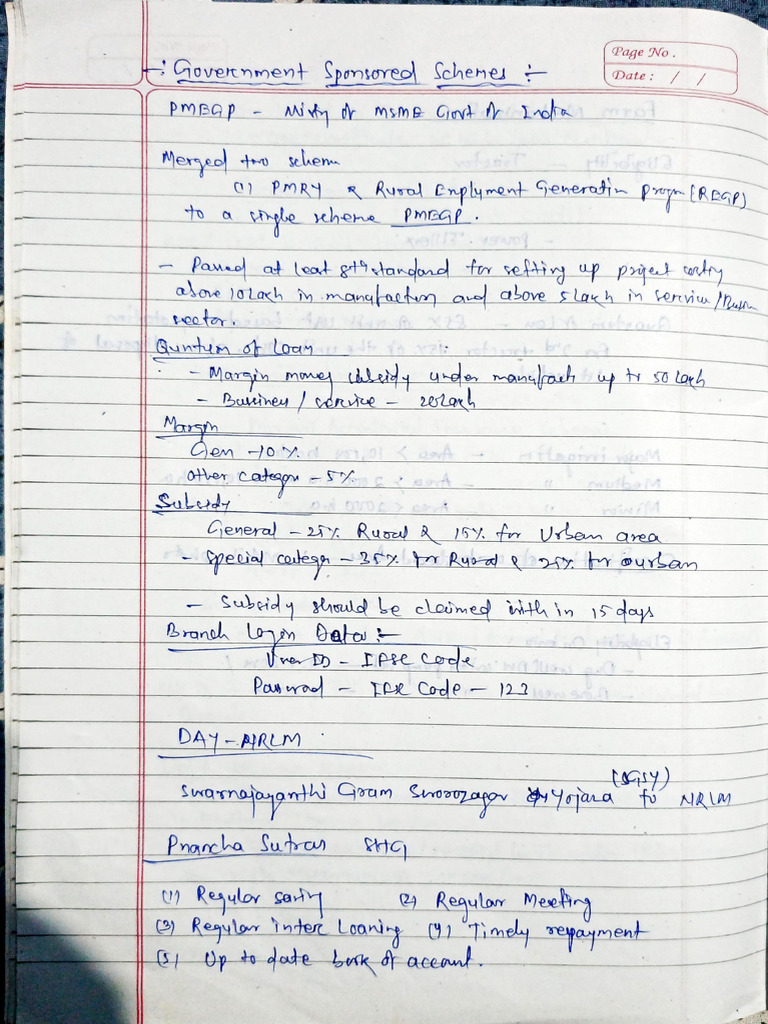 Page No.
Date: / /
-: Government Sponsored Schemes :-
PMEGP - Mistry of MSME Govt of India
Merged two scheme
(1) PMRY & Rural Enplyment Generatin progm (REGP)
to a single scheme PMEGP.
- Passed at least 8th standard for setting up project costing
above 10 Lakh in manufacturn and above 5 lakh in service/Bussn
sector.
Quntum of Loan
- Margin money subsidy under manufactr up to 50 lakh
- Bussiness / service - 20 Lakh
Margin
Gen - 10%.
other categor - 5%
Subsidy
General - 25% Rural & 15% for Urban area
- special categr - 35% for Rural & 25% for urban
- Subsidy should be claimed with in 15 days
Branch Login Data :-
User ID - IFSC Code
Password - IFSC Code - 123
DAY - NRLM
(SGSY)
Swarnajayanthi Gram Swrorozagar Yojana to NRLM
Pnancha Sutras SHG
(1) Regular saving (2) Regular Meeting
(3) Regular inter Loaning (4) Timely repayment
(5) Up to date book of account.